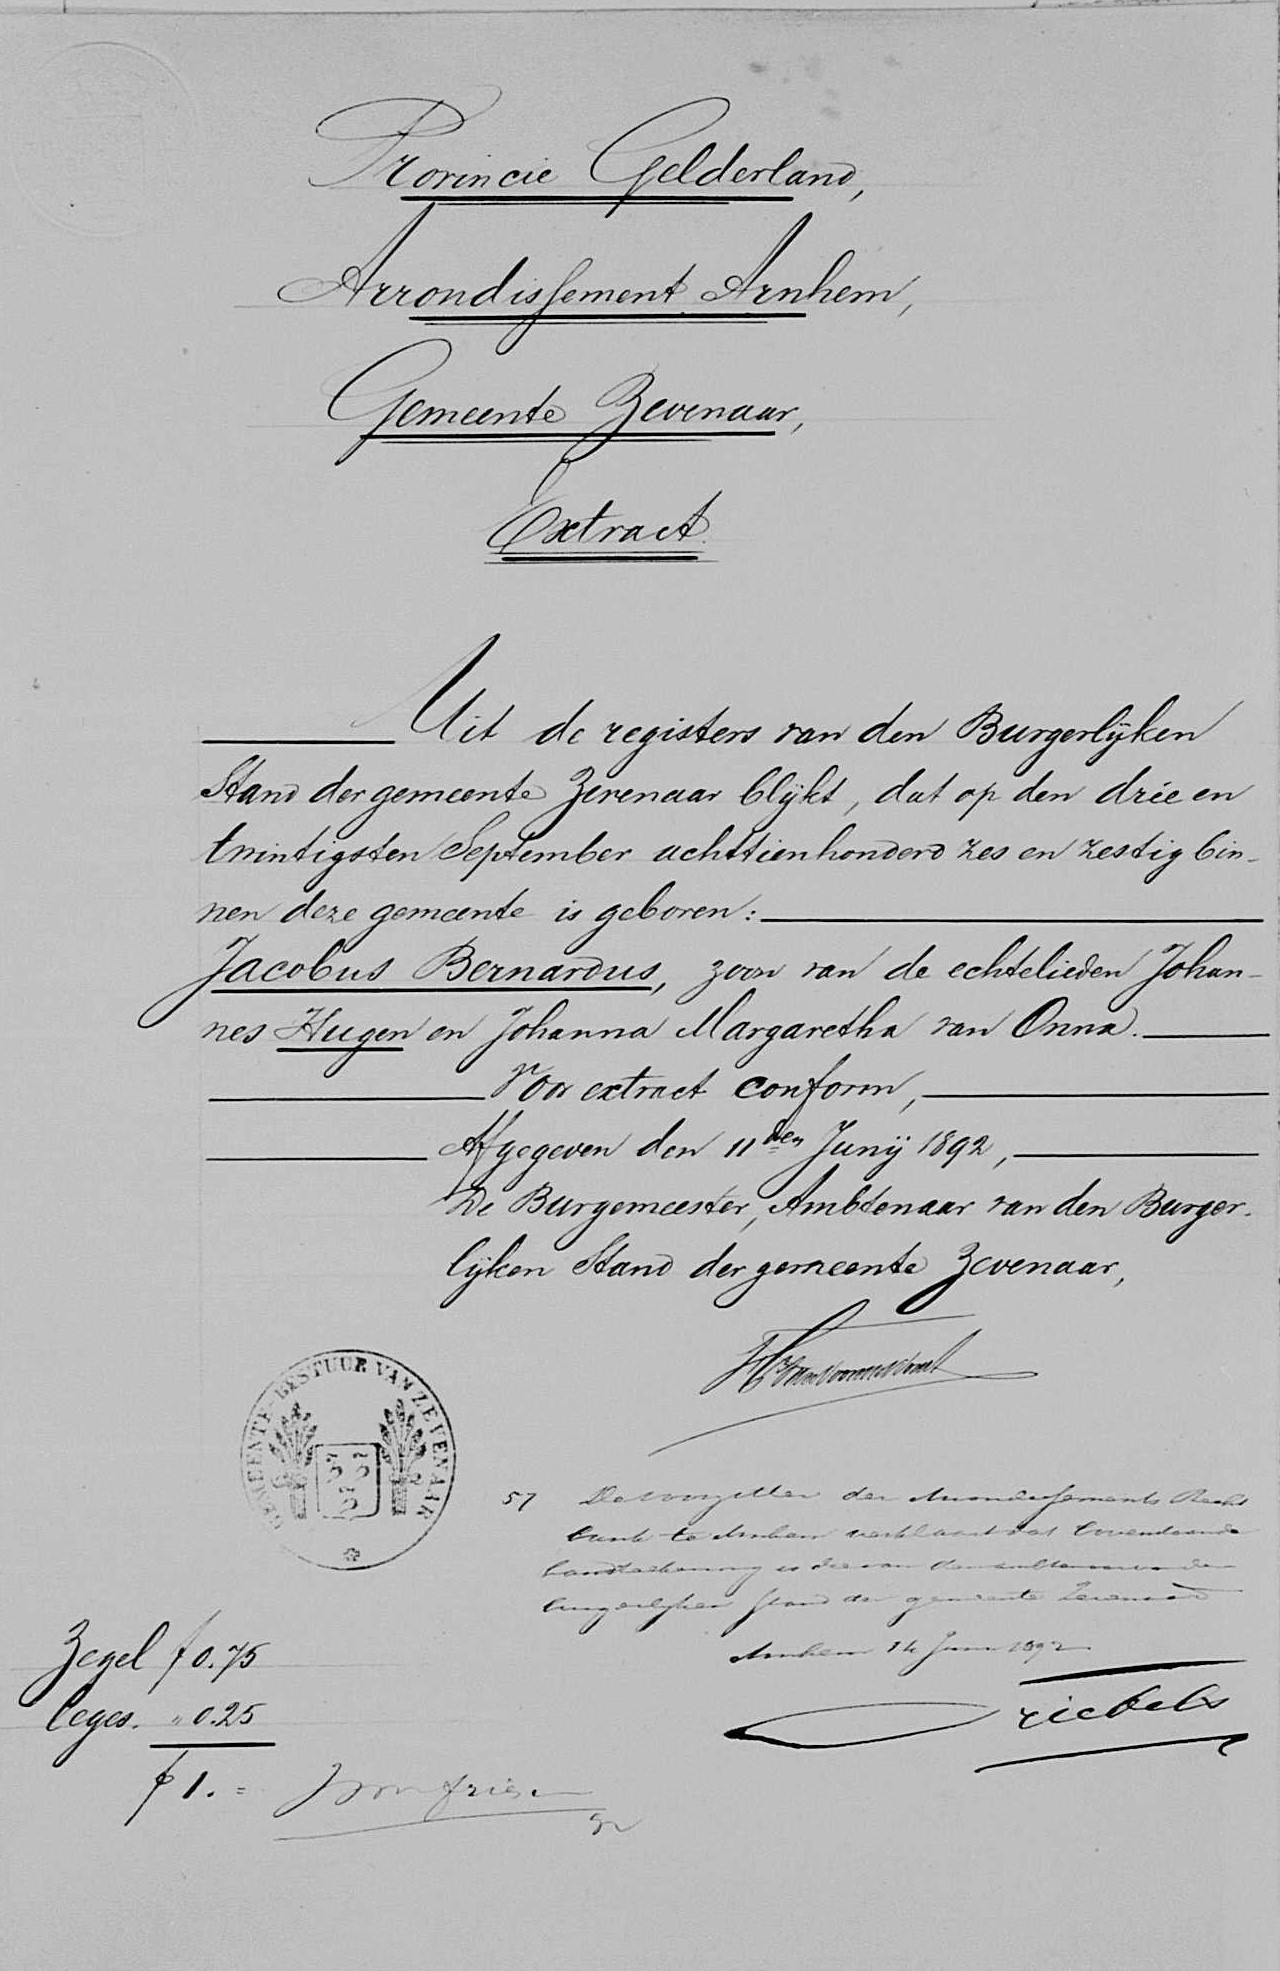 Provincie Gelderland,
Arrondissement Arnhem,
Gemeente Zevenaar,
Extract.
Uit de registers van den Burgerlijken
Stand der gemeente Zevenaar blijkt, dat op den drie en
twintigsten September achttienhonderd zes en zestig bin-
nen deze gemeente is geboren:
Jacobus Bernardus, zoon van de echtelieden Johan-
nes Hugen en Johanna Margaretha van Onna.
Voor extract conform,
Afgegeven den 11den Junij 1892,
De Burgemeester, Ambtenaar van den Burger-
lijken Stand der gemeente Zevenaar,
GEMEENTE-BESTUUR VAN ZEVENAAR
57 De voorzitter der Arrondissements Recht
bank te Arnhem verklaart dat bovenstaande
handteekening is die van den ambtenaar van den
burgerlijken stand der gemeente Zevenaar
Arnhem 14 Juni 1892
Zegel f 0.75
Leges. " 0.25
f 1. =